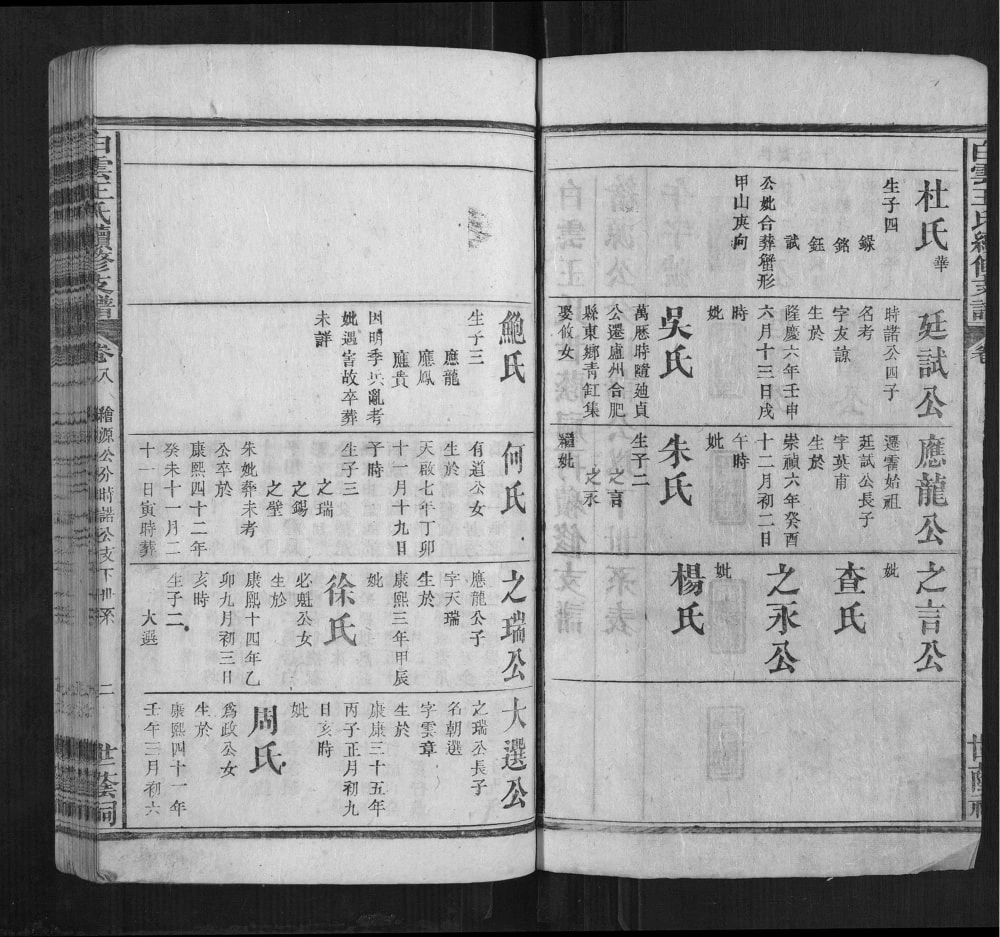 白雲王氏續修支譜
卷
世蔭祠
杜氏華
生子四
錄
銘
鈺
試
公妣合葬蟹形
甲山庚向
廷試公
時諾公四子
名考
字友諒
生於
隆慶六年壬申
六月十三日戌
時
妣
吳氏
萬厯時隨廸貞
公遷廬州合肥
縣東鄉青缸集
娶攸女
應龍公
遷霍始祖
廷試公長子
字英甫
生於
崇禎六年癸酉
十二月初二日
午時
妣
朱氏
生子二
之言
之永
繼妣
之言公
妣
查氏
之永公
妣
楊氏
鮑氏
生子三
應龍
應鳳
應貴
因明季兵亂考
妣遇害故卒葬
未詳
何氏
有道公女
生於
天啟七年丁卯
十一月十九日
子時
生子三
之瑞
之錫
之璧
朱妣葬未考
公卒於
康熙四十二年
癸未十一月二
十一日寅時葬
之瑞公
應龍公子
字天瑞
生於
康熙三年甲辰
妣
徐氏
必魁公女
生於
康熙十四年乙
卯九月初三日
亥時
生子二
大選
大選公
之瑞公長子
名朝選
字雲章
生於
康康三十五年
丙子正月初九
日亥時
妣
周氏
爲政公女
生於
康熙四十一年
壬年三月初六
白雲王氏續修支譜
卷八
繪源公分時諾公支下世系
二
世蔭祠